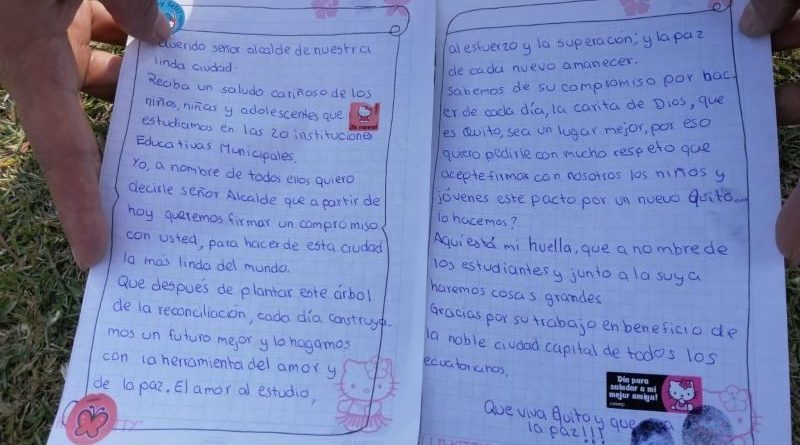 Querido señor alcalde de nuestra
linda ciudad:
Reciba un saludo cariñoso de los
niños, niñas y adolescentes que
estudiamos en las 20 instituciones
Educativas Municipales.
Yo, a nombre de todos ellos quiero
decirle señor Alcalde que a partir de
hoy queremos firmar un compromiso
con usted, para hacer de esta ciudad
la más linda del mundo.
Que después de plantar este árbol
de la reconciliación, cada día construya-
mos un futuro mejor y lo hagamos
con la herramienta del amor y
de la paz. El amor al estudio,
al esfuerzo y la superación; y la paz
de cada nuevo amanecer.
sabemos de su compromiso por hac-
er de cada día, la carita de Dios, que
es Quito, sea un lugar mejor, por eso
quiero pedirle con mucho respeto que
acepte firmar con nosotros los niños y
jóvenes este pacto por un nuevo Quito...
lo hacemos?
Aquí está mi huella, que a nombre de
los estudiantes y junto a la suya
haremos cosas grandes
Gracias por su trabajo en beneficio de
la noble ciudad capital de todos los
ecuatorianos.
Día para
saludar a mi
mejor amiga!
Que viva Quito y que viva
la paz!!!